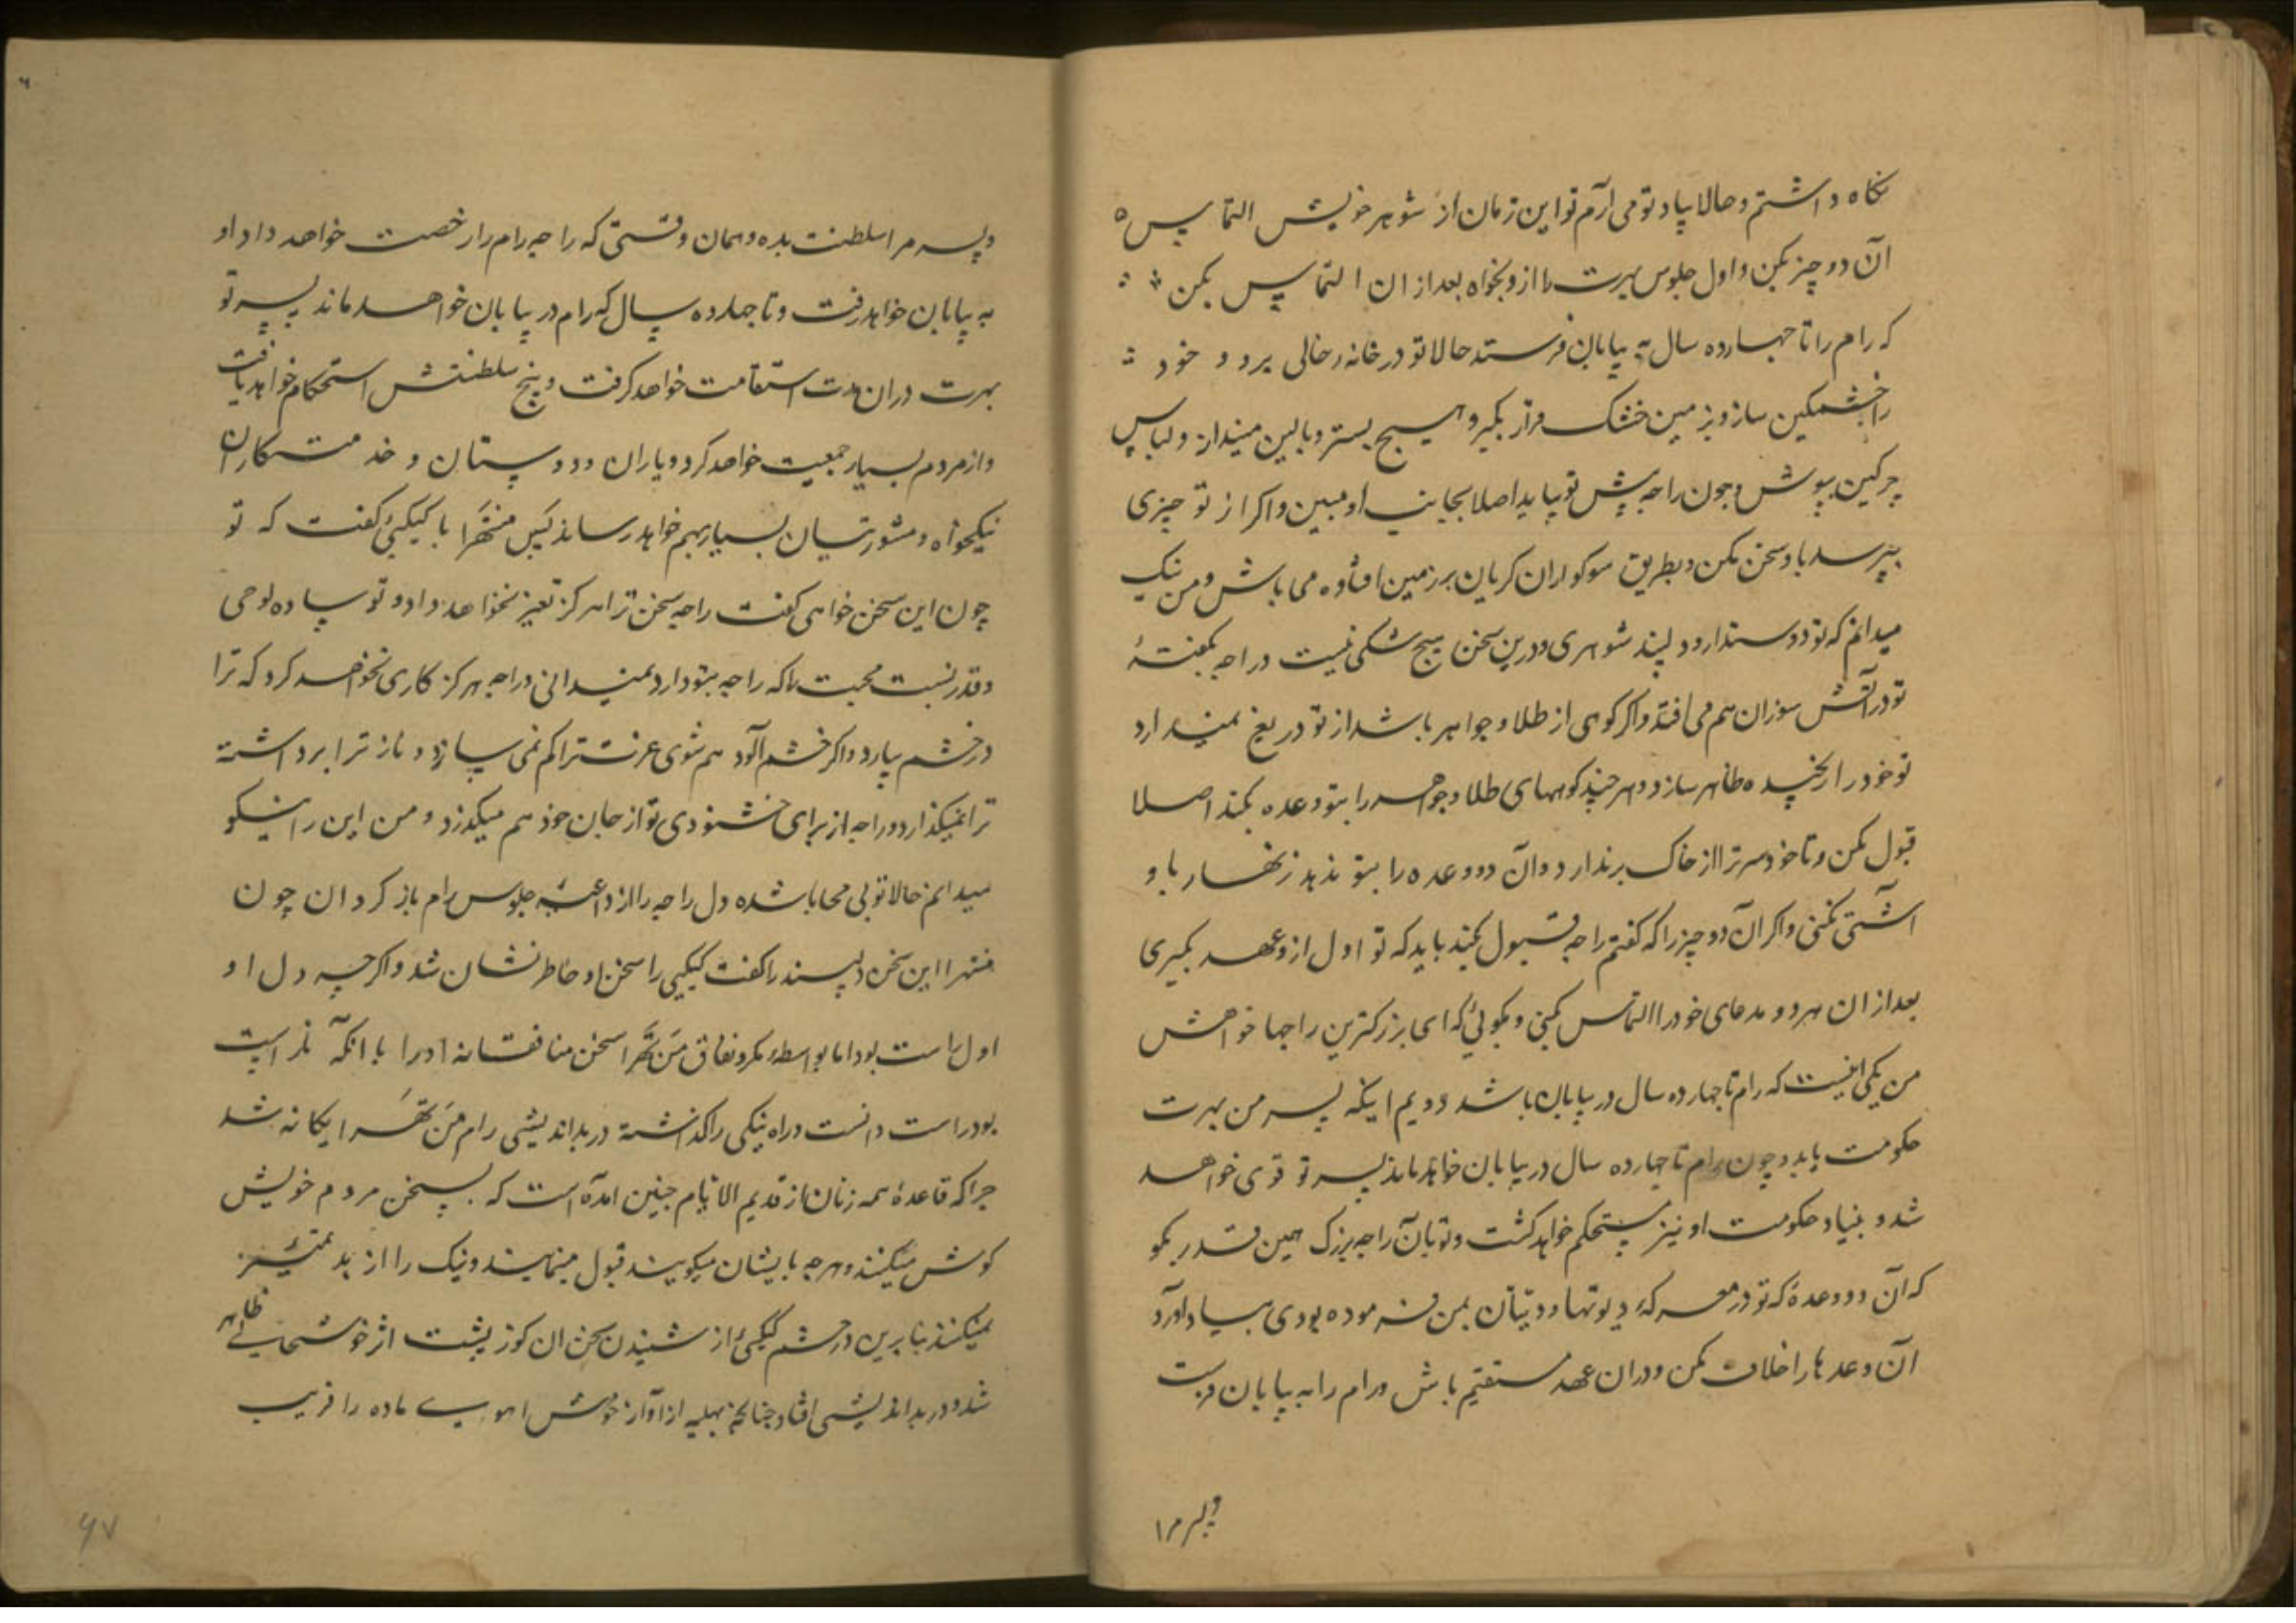 نکاه داشتم و حالا بیاد تو می آرم تو این زمان از شوهر خویش التماس
آن دو چیز بکن و اول جلوس بهرت را از و بخواه بعد از ان التماس بکن
که رام را تا چهارده سال به بیابان فرستد حالا تو در خانه رخالی برو و خود
را خشمکین ساز و بزمین خشک دراز بکیر و هیچ بستر و بالین مینداز و لباس
چرکین بپوش و چون راجه پیش تو بیاید اصلا بجانب او مبین و اکر از تو چیزی
بپرسد با و سخن مکن و بطریق سوکواران کریان بر زمین افتاده می باش و من نیک
میدانم که تو دوستدار و دلپسند شوهری و درین سخن هیچ شکی نیست و راجه بکفتهٔ
تو در آتش سوزان هم می افتد و اکر کوهی از طلا و جواهر باشد از تو دریغ نمیدارد
تو خود را رنجیده ظاهر ساز و هر چند کوههای طلا و جواهر را بتو وعده بکند اصلا
قبول مکن و تا خود سر ترا از خاک برندارد و آن دو وعده را بتو ندهد زنهار با و
آشتی نکنی و اکر ان دو چیز را که کفتم راجه قبول بکند باید که تو اول از و عهد بکیری
بعد از ان هر دو مدعای خود را التماس کنی و بکوئی که ای بزرکترین راجها خواهش
من یکی اینست که رام تا چهارده سال در بیابان باشد دویم اینکه پسر من بهرت
حکومت یابد و چون رام تا چهارده سال در بیابان خواهد ماند پسر تو قوی خواهد
شد و بنیاد حکومت او نیز مستحکم خواهد کشت و تو بآن راجه بزرک همین قدر بکو
که آن دو وعدهٔ که تو در معرکهٔ دیوتها و دیتان بمن فرموده بودی بیاد آورد
آن وعدها را خلاف مکن و دران عهد مستقیم باش و رام را به بیابان فرست
و پسر مرا
و پسر مرا سلطنت بده و همان وقتی که راجه رام را رخصت خواهد داد او
به بیابان خواهد رفت و تا چهارده سال که رام در بیابان خواهد ماند پسر تو
بهرت دران مدت استقامت خواهد کرفت و بیخ سلطنتش استحکام خواهد یافت
و از مردم بسیار جمعیت خواهد کرد و یاران و دوستان و خدمتکاران
نیکخواه و مشورتیان بسیار بهم خواهد رساند پس منتهرا با کیکیئ کفت که تو
چون این سخن خواهی کفت راجه سخن ترا هرکز تغیر نخواهد داد و تو ساده لوحی
و قدر نسبت محبت را که راجه بتو دارد نمیدانی و راجه هرکز کاری نخواهد کرد که ترا
در خشم بیارد و اکر خشم آلود هم شوی عزت ترا کم نمی سازد و ناز ترا برداشته
ترا نمیکذارد و راجه از برای خشنودی تو از جان خود هم میکذرد و من این را نیکو
میدانم حالا تو بی محابا شده دل راجه را از داعیه جلوس رام باز کردان چون
منتهرا این سخن دلپسند را کفت کیکیی را سخن او خاطر نشان شد و اکرچه دل او
اول راست بود اما بواسطه مکر و نفاق منتهرا سخن منافقانه او را با انکه نا راست
بود راست دانست و راه نیکی را کذاشته در بد اندیشی رام منتهرا یکانه شد
چرا که قاعدهٔ همه زنان از قدیم الایام چنین امده است که بسخن مردم خویش
کوش میکنند و هر چه بایشان میکویند قبول مینمایند و نیک را از بد تمیز
نمیکنند بنابرین در چشم کیکیئ از شنیدن سخن ان کوز پشت اثر خوشحالی ظاهر
شد و در بد اندیشی افتاد چنانچه بهلیه از آواز خوش اهوے ماده را فریب
۶۷